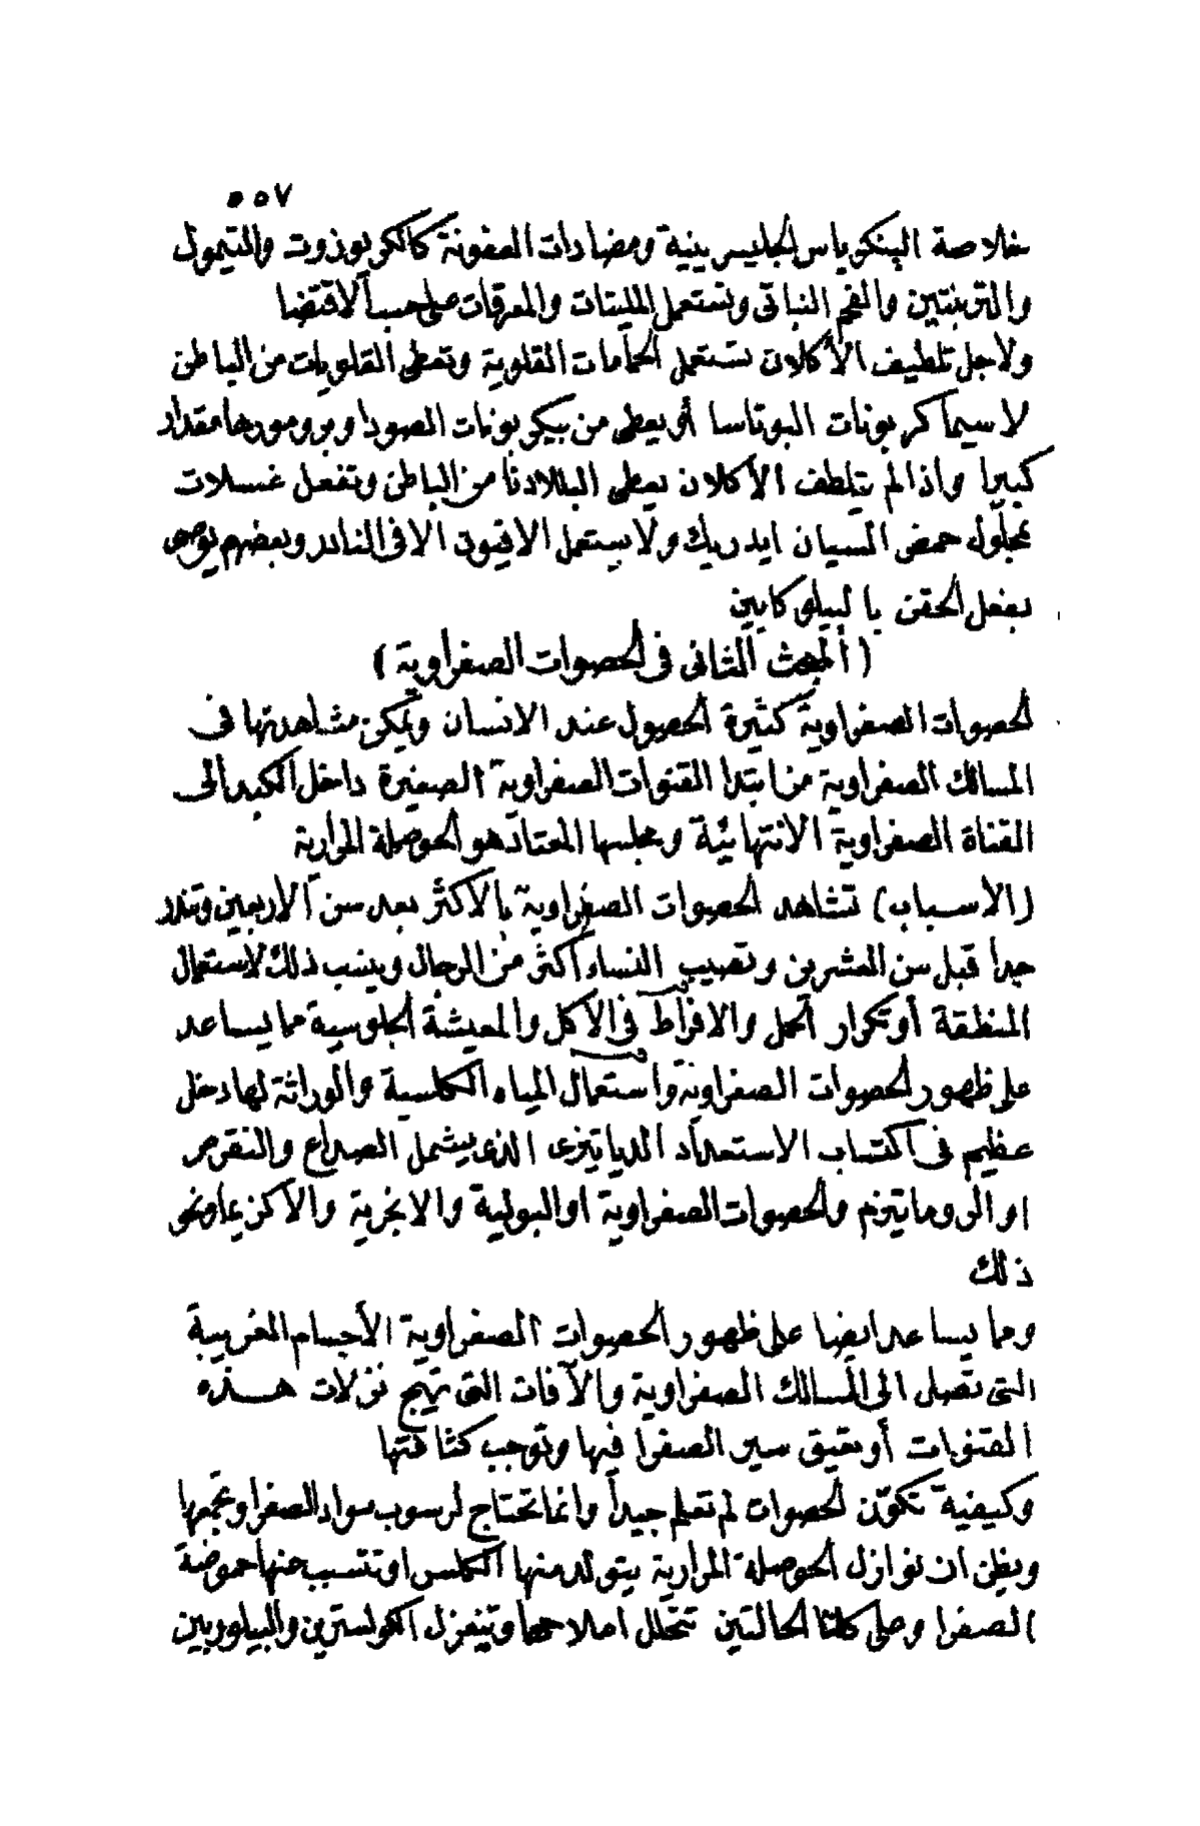 ٥٥٧
خلاصة البنكرياس الجليسرينية ومضادات العفونة كالكريوزوت والتيمول
والتربنتين والفحم النباتى وتستعمل الملينات والمعرقات على حسب الاقتضا
ولاجل تلطيف الأكلان تستعمل الحمامات القلوية وتعطى القلويات من الباطن
لاسيما كربونات البوتاسا أو يعطى من بيكربونات الصودا وبرومورها مقدار
كبيرا واذا لم يتلطف الأكلان يعطى البللادنا من الباطن وتفعل غسلات
بمحلول حمض السيان ايدريك ولا يستعمل الافيون الا فى النادر وبعضهم يوصى
بفعل الحقن بالبيلوكاپين
(ألمبحث الثانى فى الحصوات الصفراوية)
الحصوات الصفراوية كثيرة الحصول عند الانسان ويمكن مشاهدتها فى
المسالك الصفراوية من ابتدا القنوات الصفراوية الصغيرة داخل الكبد الى
القناة الصفراوية الانتهائية ومجلسها المعتاد هو الحوصلة المرارية
(الأسباب) تشاهد الحصوات الصفراوية بالاكثر بعد سن الاربعين وتندر
جدا قبل سن العشرين وتصيب النساء اكثر من الرجال وينسب ذلك لاستعمال
المنطقة أو تكرار الحمل والافراط فى الأكل والمعيشة الجلوسية مما يساعد
على ظهور الحصوات الصفراوية واستعمال المياه الكلسية والوراثة لها دخل
عظيم فى اكتساب الاستعداد الدياتيزى الذى يشمل الصداع والنقرس
او الروماتيزم والحصوات الصفراوية او البولية والانجرية والاكزيما ونحو
ذلك
ومما يساعد ايضا على ظهور الحصوات الصفراوية الأجسام الغريبة
التى تصل الى المسالك الصفراوية والآفات التى تهيج نزلات هذه
القنوات أو تعيق سير الصفرا فيها وتوجب كثافتها
وكيفية تكوّن الحصوات لم تعلم جيداً وانما تحتاج لرسوب مواد الصفرا وتجمعها
ويظن ان نوازل الحوصلة المرارية يتولد منها الكلس او تتسبب عنها حموضة
الصفرا وعلى كلتا الحالتين تتحلل املاحها وينعزل الكولسترين والبيلوربين